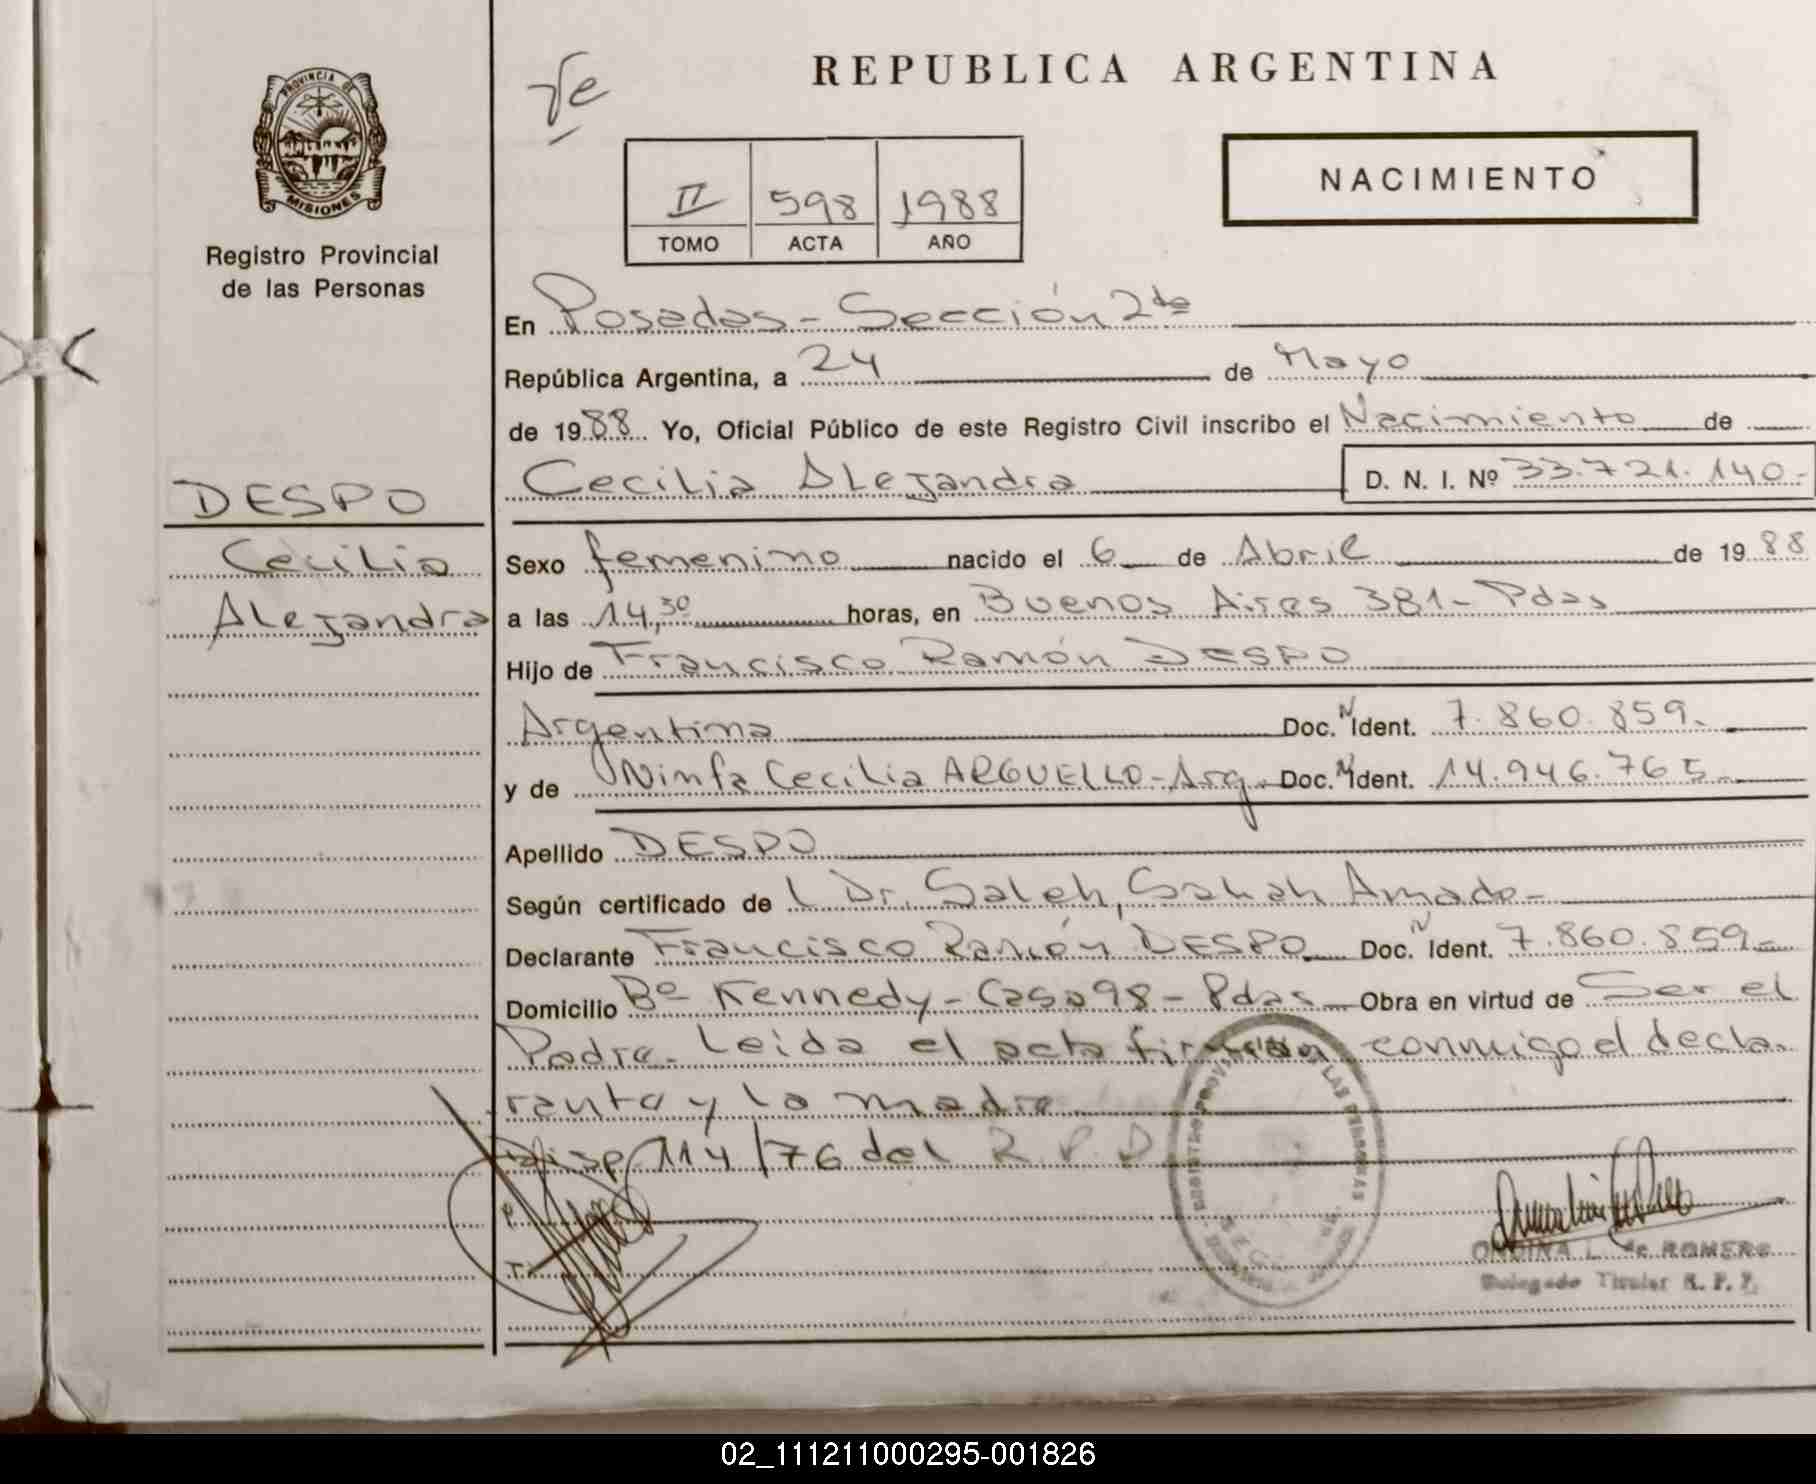 REPUBLICA ARGENTINA
PROVINCIA DE
MISIONES
Registro Provincial
de las Personas
II 598 1988
TOMO ACTA AÑO
NACIMIENTO
En Posadas - Sección 2da
República Argentina, a 24 de Mayo
de 1988 Yo, Oficial Público de este Registro Civil inscribo el Nacimiento de
Cecilia Alejandra D. N. I. Nº 33.721.140.-
DESPO
Cecilia
Alejandra
Sexo femenino nacido el 6 de Abril de 1988
a las 14,30 horas, en Buenos Aires 381 - Pdas
Hijo de Francisco Ramón DESPO
Argentina Doc. N Ident. 7.860.859.-
y de Ninfa Cecilia ARGUELLO - Arg. Doc. N Ident. 14.946.765.-
Apellido DESPO
Según certificado de l Dr. Saleh, Amado -
Declarante Francisco Ramón DESPO Doc. N Ident. 7.860.859.-
Domicilio Bº Kennedy - Casa 98 - Pdas Obra en virtud de Ser el
Padre. Leida el acta firman conmigo el decla.
rante y la madre
Disp. 114/76 del R.P.D
ONDINA L. de ROMERO
Delegado Titular R. P. P.
02_111211000295-001826